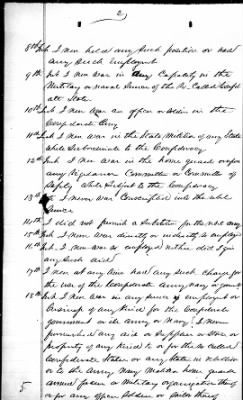 2
8th Int. I never held any such position or had
any such employment
9th Int. I never was in any Capacity in the
Military or naval Service of the So Called Confed
ate State
10th Int. I never was an officer or soldier in the
Confederate Army
11th Int. I never was in the State Militia of any State
while Subordinate to the Confederacy
12th Int. I never was in the home guards or of any
Vigilance Committee or Committee of
Safety while Subject to the Confederacy
13th I never was Conscripted into the
Service
14th I did not furnish a Substitute for the
15th Int. I never was directly or indirectly so employed
16th Int. I never was so employed neither did I give
any such aid
17th I never at any time had any such charge for
the use of the Confederate Army navy or
18th Int. I never was in any service or employed or
of any kind for the Confederate
government or its army or Navy. I never
furnished any aid or Supplies or Stores or
property of any kind to or for the So Called
Confederate States or any State in rebellion
or to the Army Navy Militia home guards
armed forces or Military organization thereof
or for any officer Soldier or Sailor thereof
5